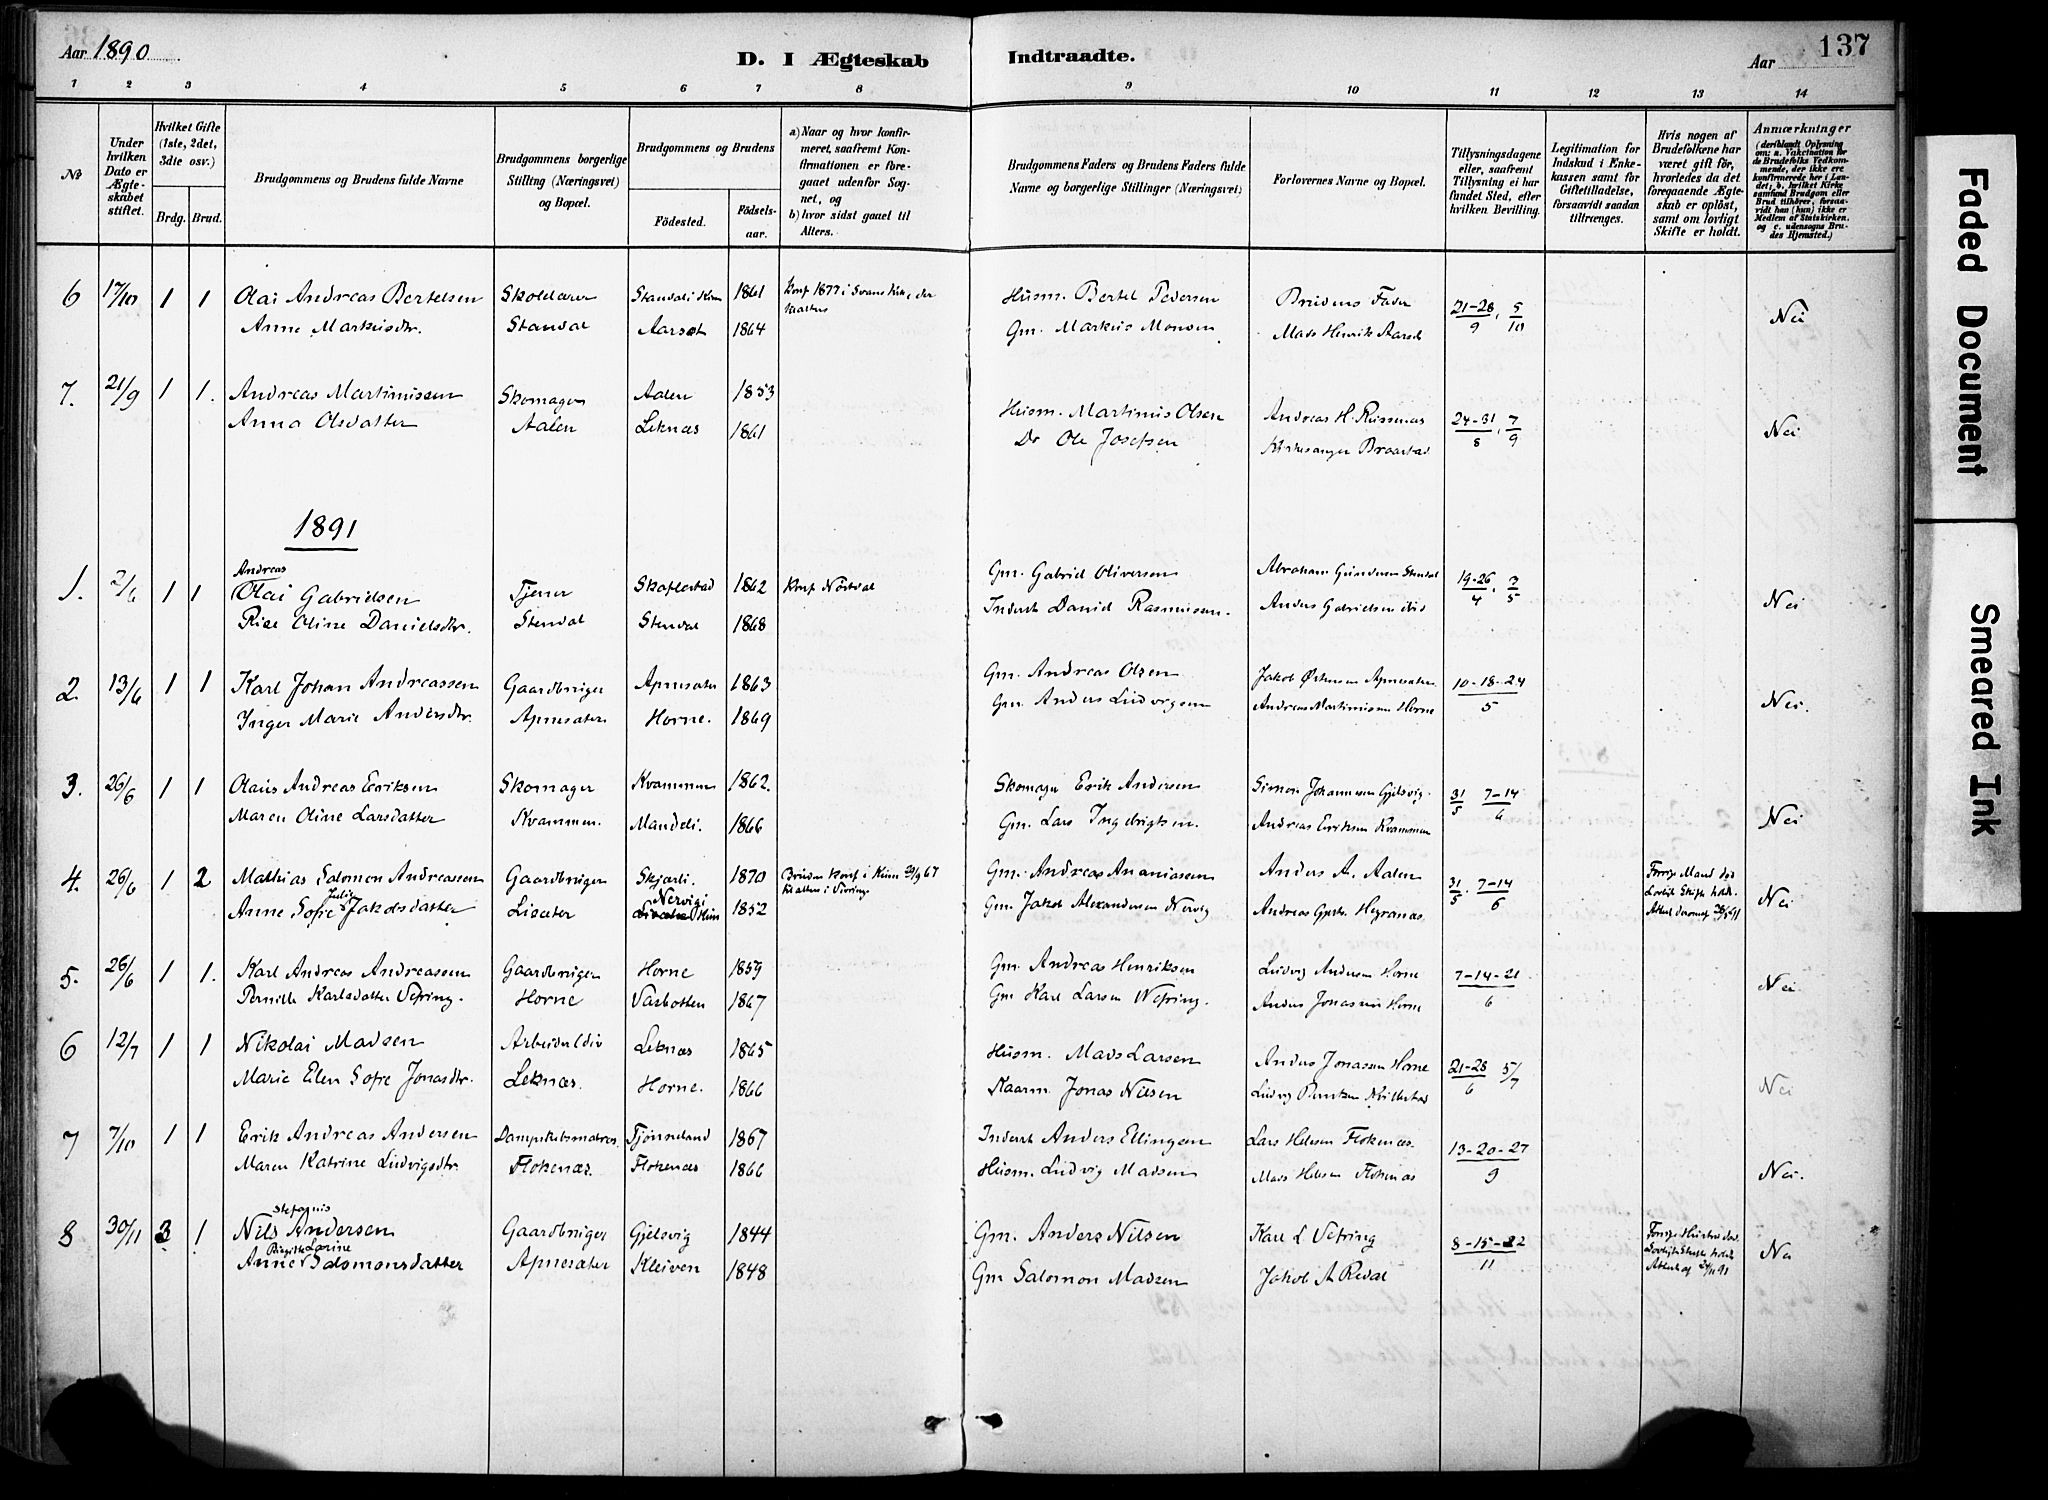 Aar 1890
D. I Ægteskab Indtraadte.
Aar
137
1 2 3 4 5 6 7 8 9 10 11 12 13 14
No
Under hvilken Dato er Ægteskabet stiftet.
Hvilket Gifte (1ste, 2det, 3die osv.)
Brdg. Brud.
Brudgommens og Brudens fulde Navne
Brudgommens borgerlige Stilling (Næringsvei) og Bopæl.
Brudgommens og Brudens
Fødested.
Fødselsaar.
a) Naar og hvor konfirmeret, saafremt Konfirmationen er foregaaet udenfor Sognet, og
b) hvor sidst gaaet til Alters.
Brudgommens Faders og Brudens Faders fulde Navne og borgerlige Stillinger (Næringsvei)
Forlovernes Navne og Bopæl.
Tillysningsdagene eller, saafremt Tillysning ei har fundet Sted, efter hvilken Bevilling.
Legitimation for Indskud i Enkekassen samt for Giftetilladelse, forsaavidt saadan tiltrænges.
Hvis nogen af Brudefolkene har været gift før, hvorledes da det foregaaende Ægteskab er opløst, samt om lovligt Skifte er holdt.
Anmærkninger (deriblandt Oplysning om: a. Vakcination for de Brudefolks Vedkommende, der ikke ere konfirmerede her i Landet; b. hvilket Kirkesamfund Brudgom eller Brud tilhører, forsaavidt han (hun) ikke er Medlem af Statskirken. og c. udensogns Brudes Hjemsted.)
6 17/10 1 1 Olai Andreas Bertelsen Standal 1861 Husm. Bertel Pedersen Brudens Fader 21-28/9, 5/10 Nei
Anne Markusdtr. Standal Aarset 1864 Gm. Markus Monsen Mads Henrik Aarset
7. 21/9 1 1. Andreas Martinussen Skomager Aalen 1853 Husm. Martinus Olsen Andreas H. 24-31/8, 7/9 Nei
Anna Olsdatter Aalen Leknæs 1861 Do Ole Josefsen Kirkesanger Braastad
1891
1. 2/6 1 1 Andreas
Olai Gabrielsen Tjener 1862 Konf Gm. Gabriel Oliversen Abraham Gundersen Stendal 19-26/4, 3/5 Nei
Oline Danielsdtr. Stendal Stendal 1868 Inderst Daniel Rasmussen. Anders Gabrielsen ibid
2. 13/6 1 1 Karl Johan Andreassen Gaardbruger Apnesæter 1863 Gm. Andreas Olsen Jakob Apnesæter 10-18-24/5 Nei.
Inger Marie Andersdtr. Apnesæter Horne. 1869 Gm. Anders Ludvigsen Andreas Martinussen Horne
3. 26/6 1 1 Olaus Andreas Eriksen Skomager Kvammen 1862. Skomager Erik Andersen Simon Johannesen Gjelsvig 31/5 7-14/6 Nei
Maren Oline Larsdatter Kvammen. 1866 Gm. Lars Andreas Eriksen Kvammen
4. 26/6 1 2 Mathias Salomon Andreassen Gaardbruger Skjærli. 1870 Bruden konf i Kinn 29/9 67 Gm. Andreas Ananiassen Anders A. Aalen 31/5. 7-14/6 Forrige Mand død Lovligt Skifte holdt. Nei
Anne Sofie Julie Jakobsdatter Lisæter Nervigi 1852 Gm. Jakob Alexandersen Nervig Andreas
5. 26/6 1 1. Karl Andreas Andreassen Gaardbruger Horne 1859 Gm. Andreas Henriksen Ludvig Andersen Horne 7-14-21/6 Nei
Pernille Karlsdatter Vefring. Horne Varbotten 1867 Gm Karl Larsen Wefring. Anders Jonassen Horne
6 12/7 1 1 Nikolai Madsen Leknæs 1865 Husm. Mads Larsen Anders Jonassen Horne 21-28/6 5/7 Nei
Marie Elen Sofie Jonasdtr. Leknæs. Horne. 1866 Kaarm. Jonas Nilsen Ludvig
7 7/10 1 1 Erik Andreas Andersen Dampskibsmatros. Tjønneland 1867 Inderst Anders Ellingsen Lars Flokenæs. 13-20-27/9 Nei.
Maren Katrine Ludvigsdtr. Flokenæs. Flokenæs 1866 Husm. Ludvig Madsen Mads Flokenæs
8 30/11 3 1 Stefanus
Nils Andersen Gaardbruger Gjelsvig 1844 Gm. Anders Nilsen Karl L Vefring 8-15-22/11 Nei
Birgitte Larine
Anne Salomonsdatter Apnesæter Kleiven 1848 Gm Salomon Madsen Jakob A Redal
Faded Document
Smeared Ink